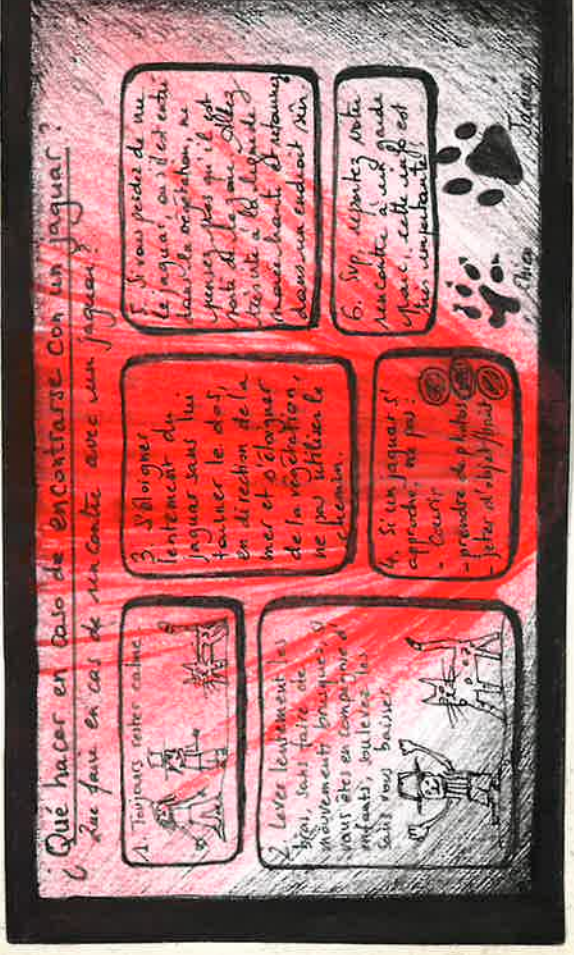 ¿Qué hacer en caso de encontrarse con un jaguar?
Que faire en cas de rencontre avec un jaguar?
1. Toujours rester calme
2. Levez lentement les
bras, sans faire de
mouvements brusques, si
vous êtes en compagnie d'
enfants, soulevez les
sans vous baisser.
3. S'éloigner
lentement du
jaguar sans lui
tourner le dos,
en direction de la
mer et s'éloigner
de la végétation,
ne pas utiliser le
chemin.
4. Si un jaguar s'
approche, ne pas:
- Courir
- prendre de photos
- Jeter d'objet/fruit
5. Si vous perdez de vue
le jaguar, ou s'il est entré
dans la végétation, ne
pensez pas qu'il est
parti de la
très vite à la ligne de
marée haute, et retournez
dans un endroit sûr.
6. Svp, reportez votre
rencontre à un garde
parc, cette info est
très importante!
Chien
Jaguar